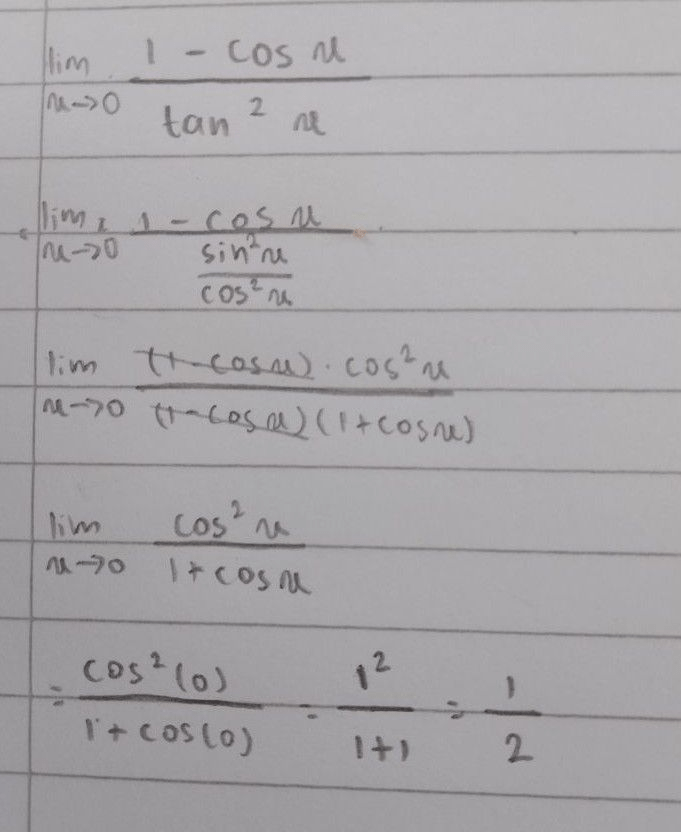 lim x→0 (1 - cos x) / (tan² x)
lim x→0 (1 - cos x) / (sin²x / cos²x)
lim x→0 ((1-cos x) · cos²x) / ((1-cos x)(1+cos x))
lim x→0 (cos² x) / (1+cos x)
= cos²(0) / (1+cos(0)) = 1² / (1+1) = 1/2